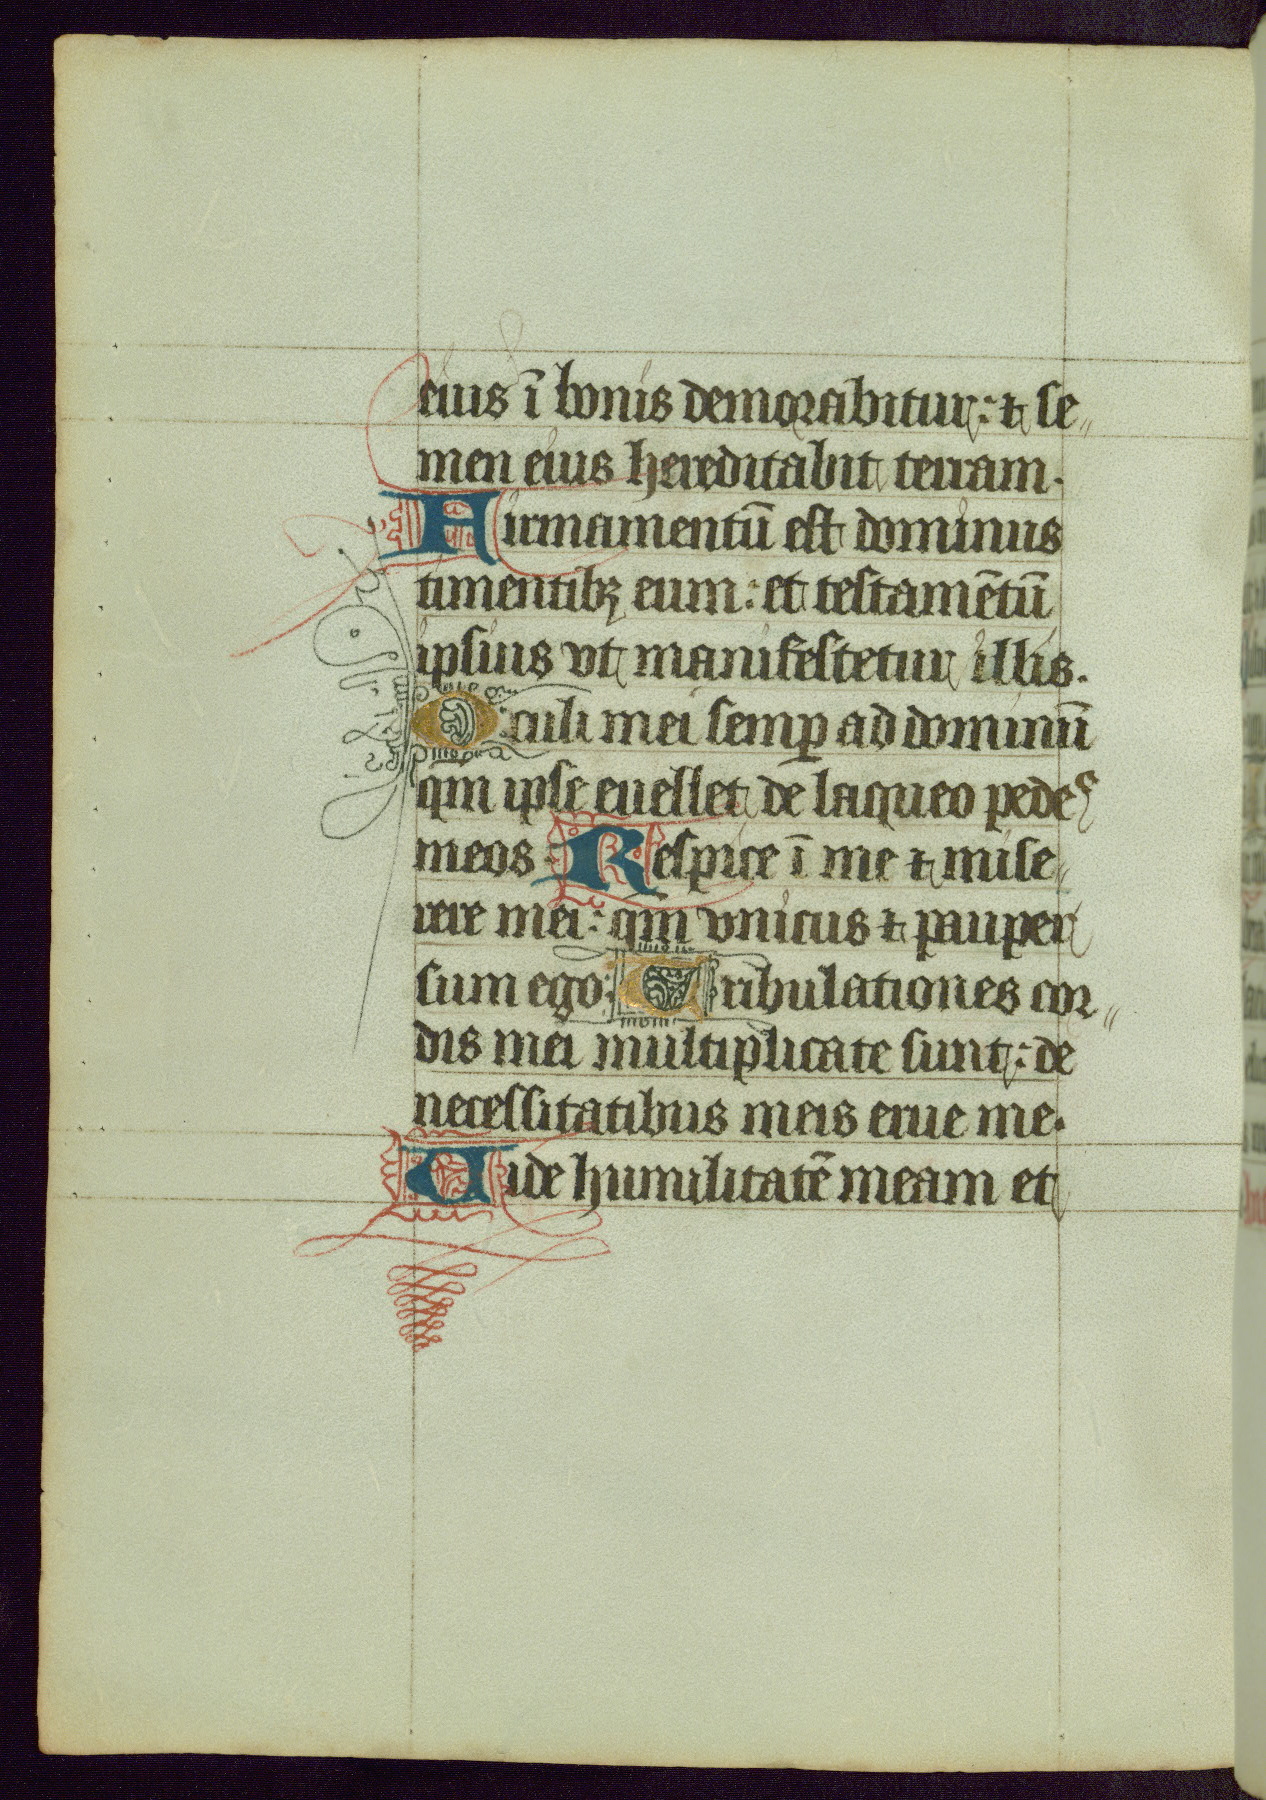 eius ī bonis demorabitur: ⁊ se〃
men eius hereditabit terram.
Firmamentū est dominus
timentibꝫ eum: et testamētū
ipsius vt manifestetur illis.
Oculi mei semꝑ ad dominū
qm̄ ipse euellet de laqueo pedes
meos. Respice ī me ⁊ mise〃
rere mei: qm̄ vnicus ⁊ pauper
sum ego. Tribulationes cor〃
dis mei multiplicate sunt: de
necessitatibus meis erue me.
Uide humilitatē meam et